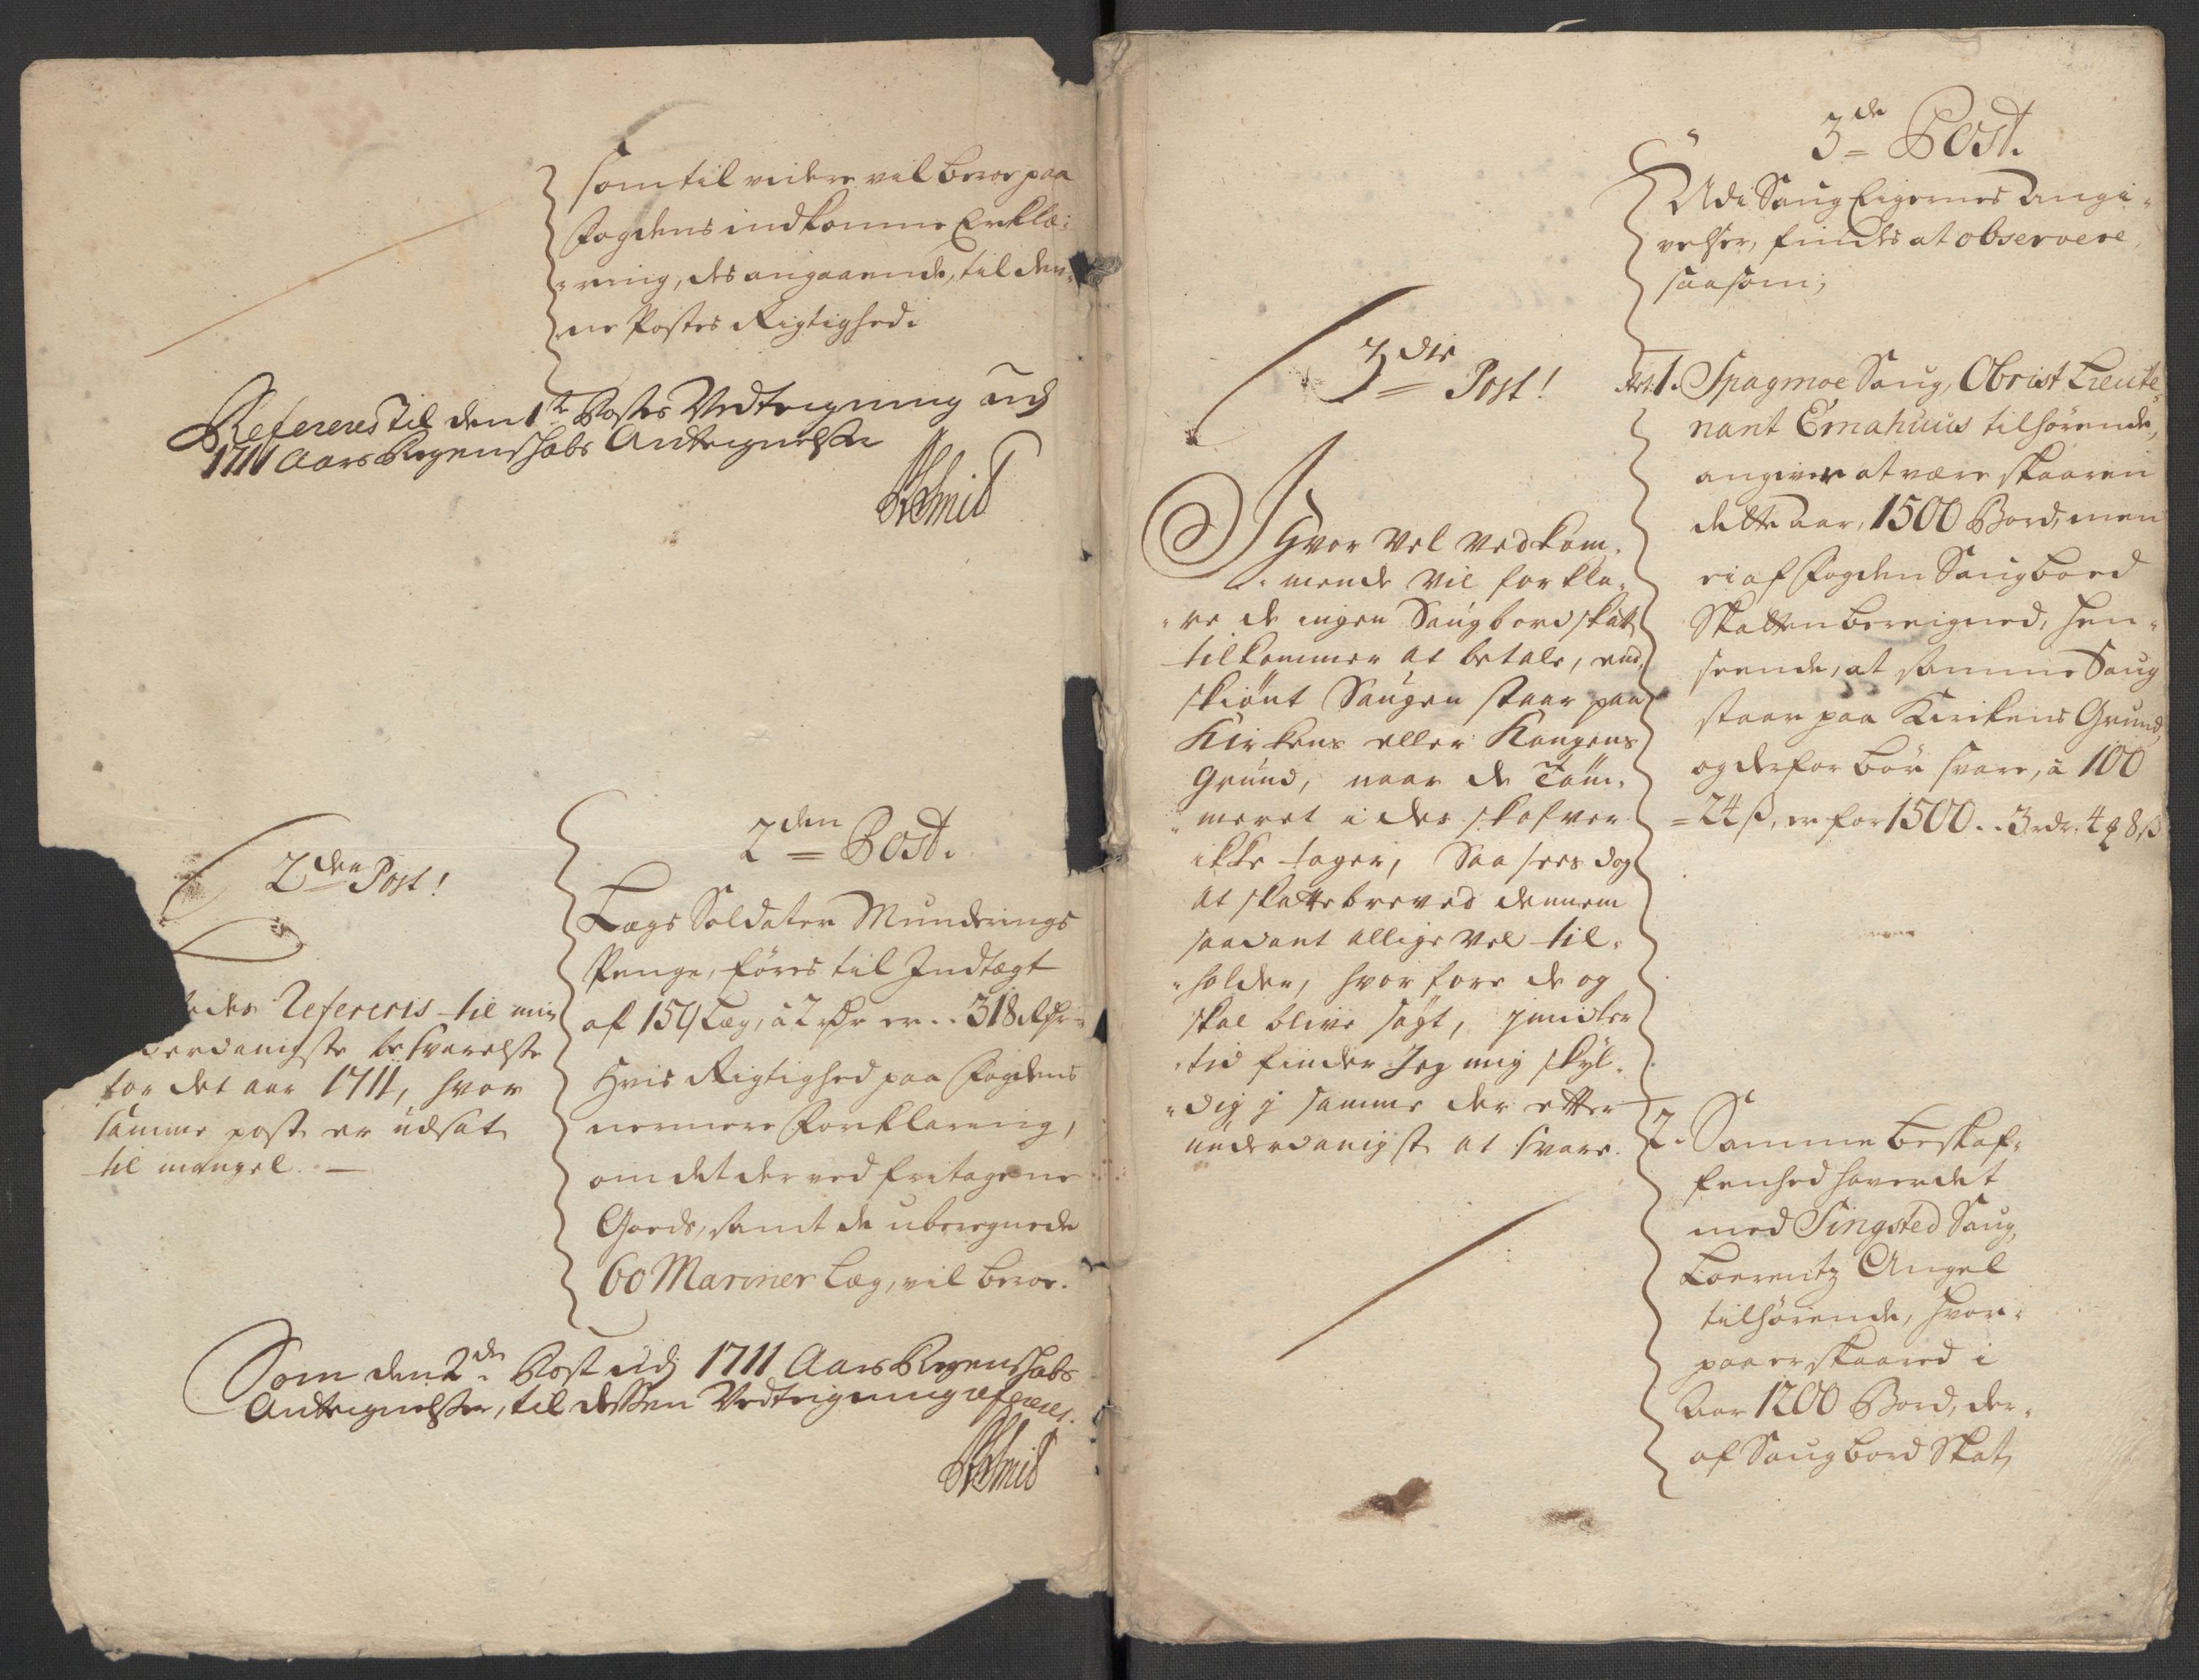 som til videre vil beroe paa
Fogdens indkomne Erklæ-
ring, des angaaende, til den-
ne Postes Rigtighed.
Refereres til den 1te Postes Vedteigning udj
1711 Aars Regenskabs Antegnelser
2den Post!
Refereris til min
underdanigste besvarelse
for det aar 1711, hvor
samme post er udsat
til mangel. —
2den Post.
Lægs Soldater Munderings
Penge, føres til Indtægt
af 159 Læg, à 2 rdr er .. 318 Rdr
Hvis Rigtighed paa Fogdens
nermere Forklaring,
om det der ved fritagne
Goeds, samt de uberegnede
60 Mariner Læg, vil beroe.
Som den 2de Post udj 1711 Aars Regenskabs
Antegnelser, til dessen Vedteigning refereres.
3die Post!
Hvor vel vedkom-
mende vil forkla-
re de ingen Saugbordskat
tilkommer at betale, end-
skiønt Saugen staar paa
Kirkens eller Kongens
Grund, naar de Tøm-
meret i des skofver
ikke tager, Saa sees dog
at skattebreved dennem
saadant allige vel til-
holder, hvorfore de og
skal blive søgt, jmidler
tid finder Jeg mig skyl-
dig j samme der efter
underdanigst at svare.
3de Post.
Udi Saug Eigernes Angi-
velser, findes at observere,
saasom;
Art: 1. Spagmoe Saug, Obrist Lieute-
nant Emahuus tilhørende,
angives at være skaaren
dette aar, 1500 Bord, men
ei af Fogden Saugbord
Skatten beregned, hen-
seende, at samme Saug
staar paa Kirkens Grund,
og derfor bør svare, à 100
= 24 ß, er for 1500 .. 3 rdr. 4 8 ß
2. Samme beskaf-
fenhed haver det
med Singsted Saug,
Lorentz Angel
tilhørende, hvor-
paa er skaared i
Aar 1200 Bord, der-
af Saugbord Skat,